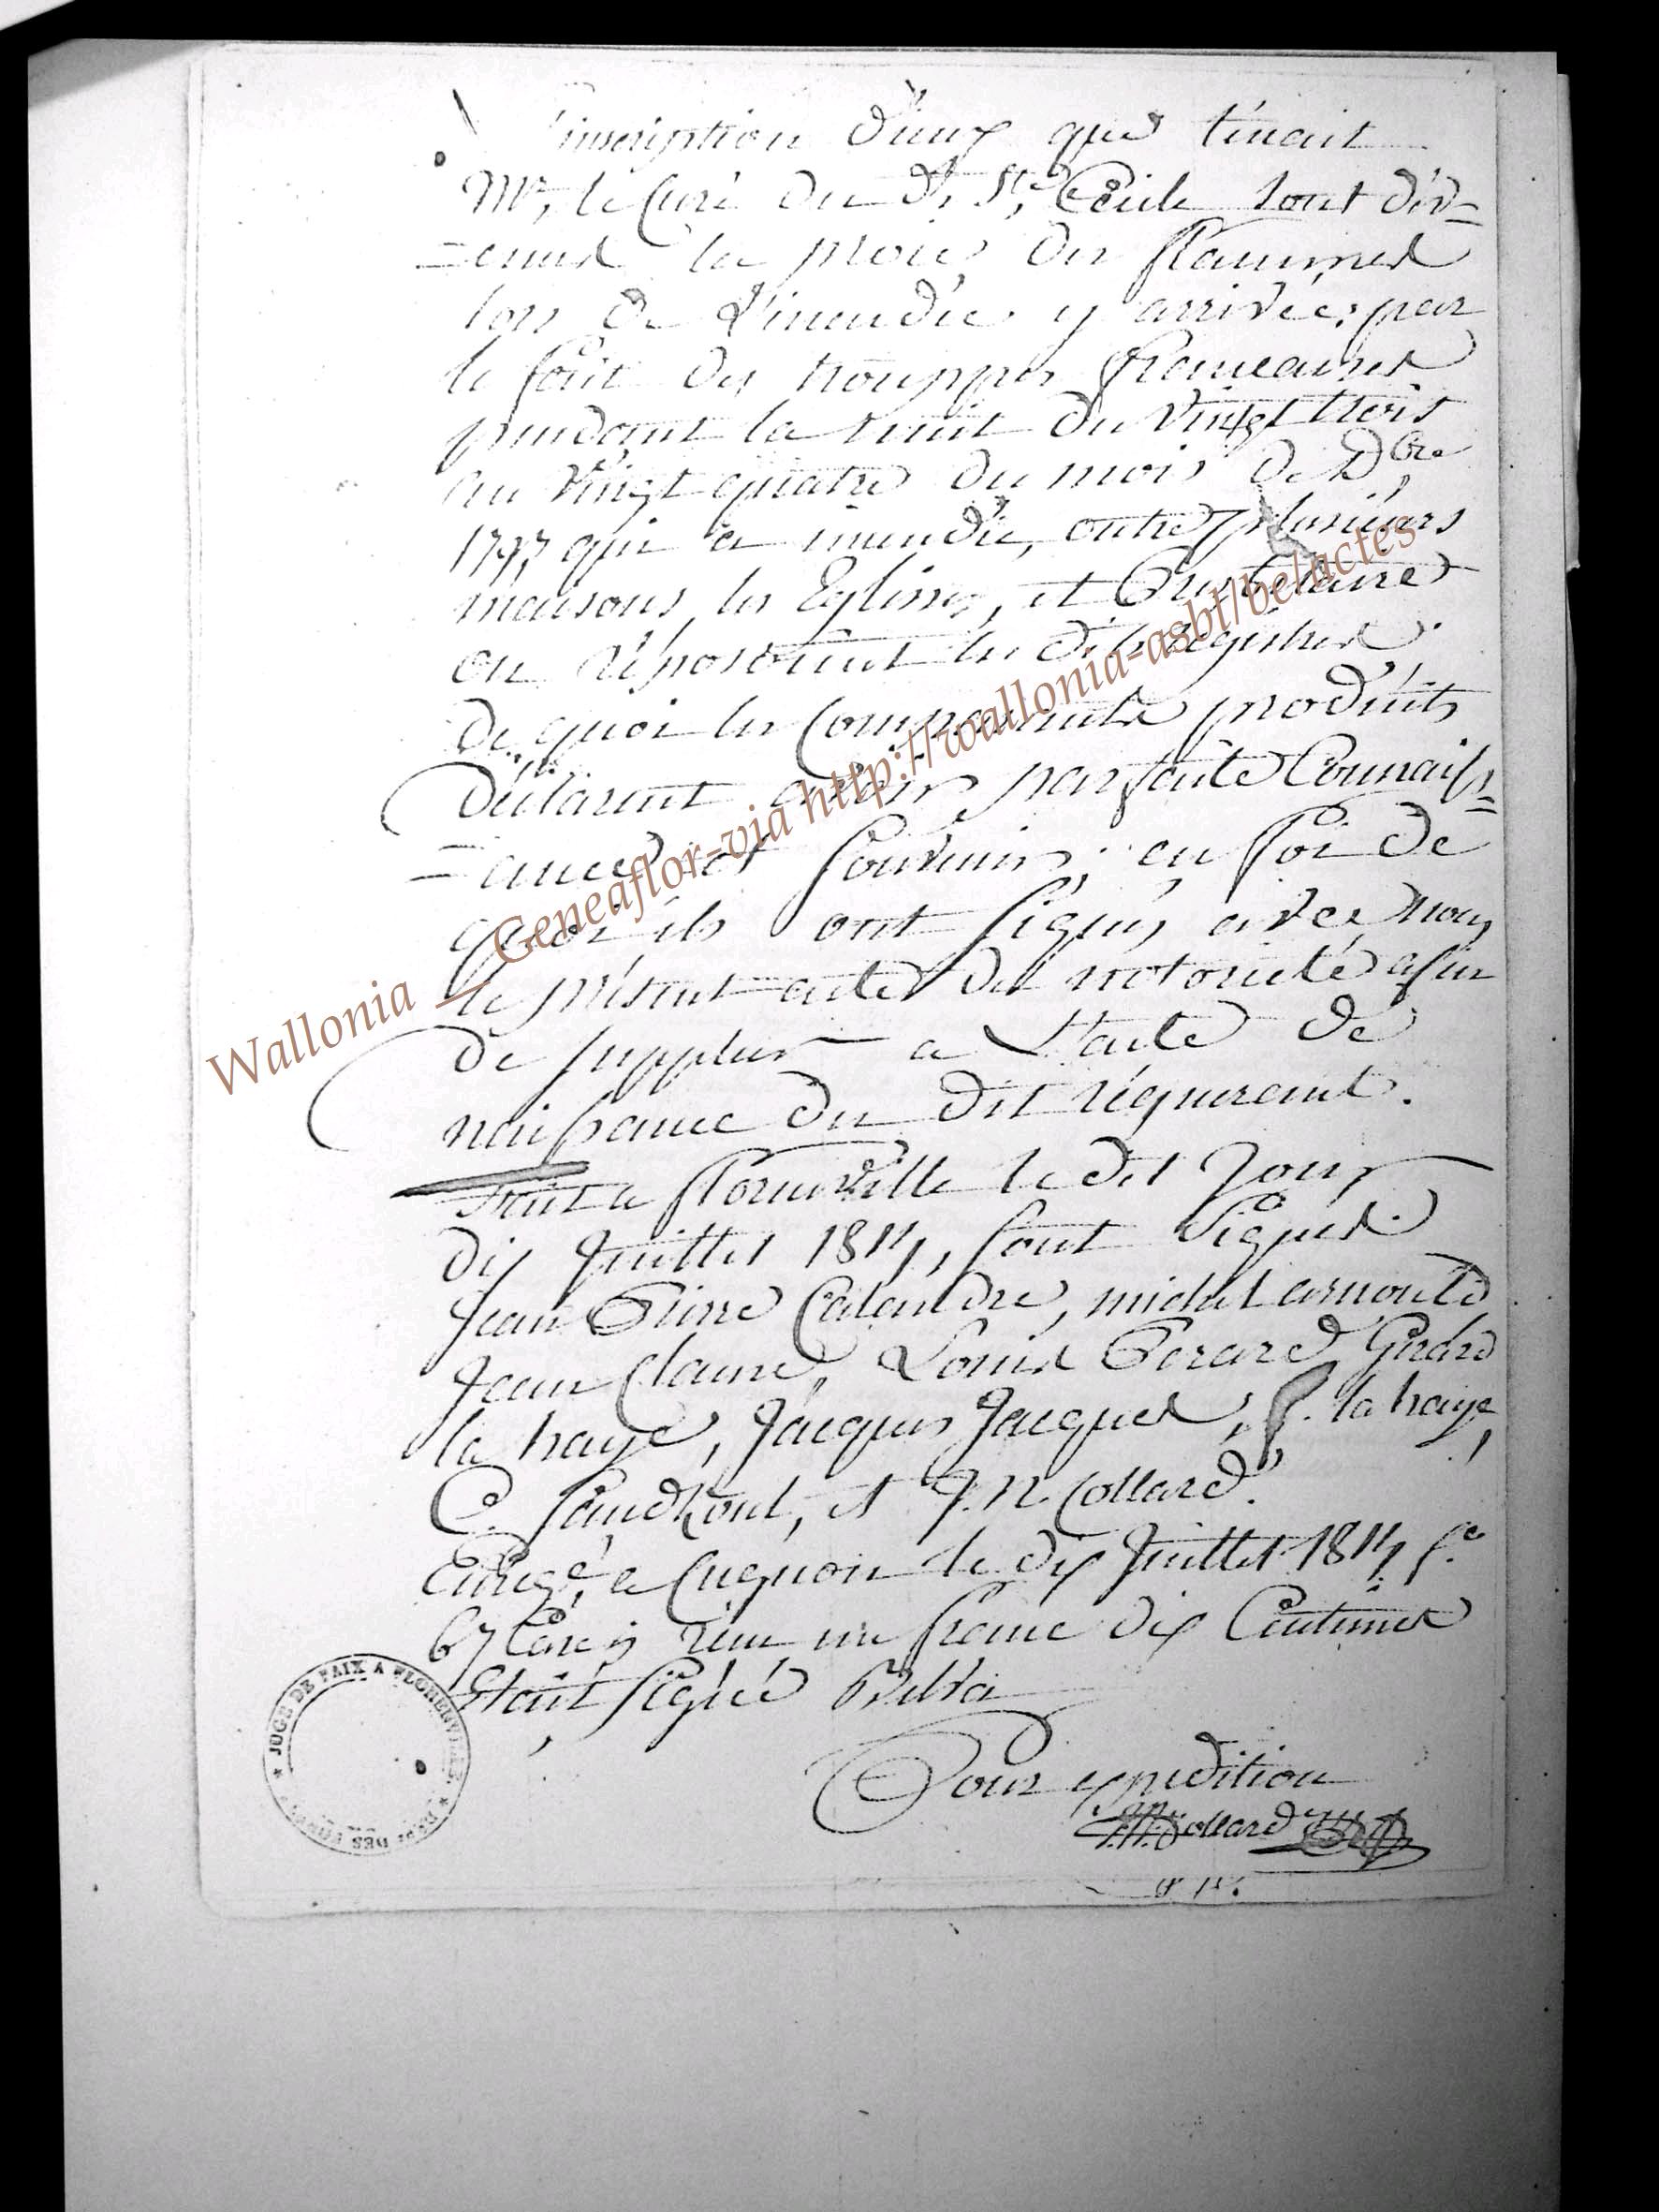 l'inscription d'iceux que tenait
Mr, le Curé du d, Ste, Cécile sont dev=
=enus la proie des flammes
lors de l'incendie y arrivée, par
le fait des trouppes françaises
pendant la nuit du vingt trois
au vingt quatre du mois de Dbre,
1793, qui a incendié, outre plusieurs
maisons, les Eglise, et Presbitaire
ou réposoient les dits registres
de quoi les Comparants produits
déclarent avoir parfaite Connaiss=
=ance et souvenir, en foi de
quoi ils ont signés avec nous
le présent acte de notorieté afin
de suppleer a l'acte de
naissance du dit requerant.
Fait a florenville le dit Jour
dix Juillet 1811, sont signés
Jean Pierre Calandre, michel arnould
Jean Claine, Louis Gerard, Girard
la haye, Jacques Jacques, f. la haye,
C. Sandront, et J. N. Collard.
Enrgé, a Cugnon le dix Juillet 1811 fo
67 Case 9 reçu un franc dix Centimes
Etait signé Delva
Pour expedition
J.N. Collard
gr.
* JUGE DE PAIX A FLORENVILLE * DEPt DES FORETS
Wallonia - Geneaflor-via http://wallonia-asbl/be/actes